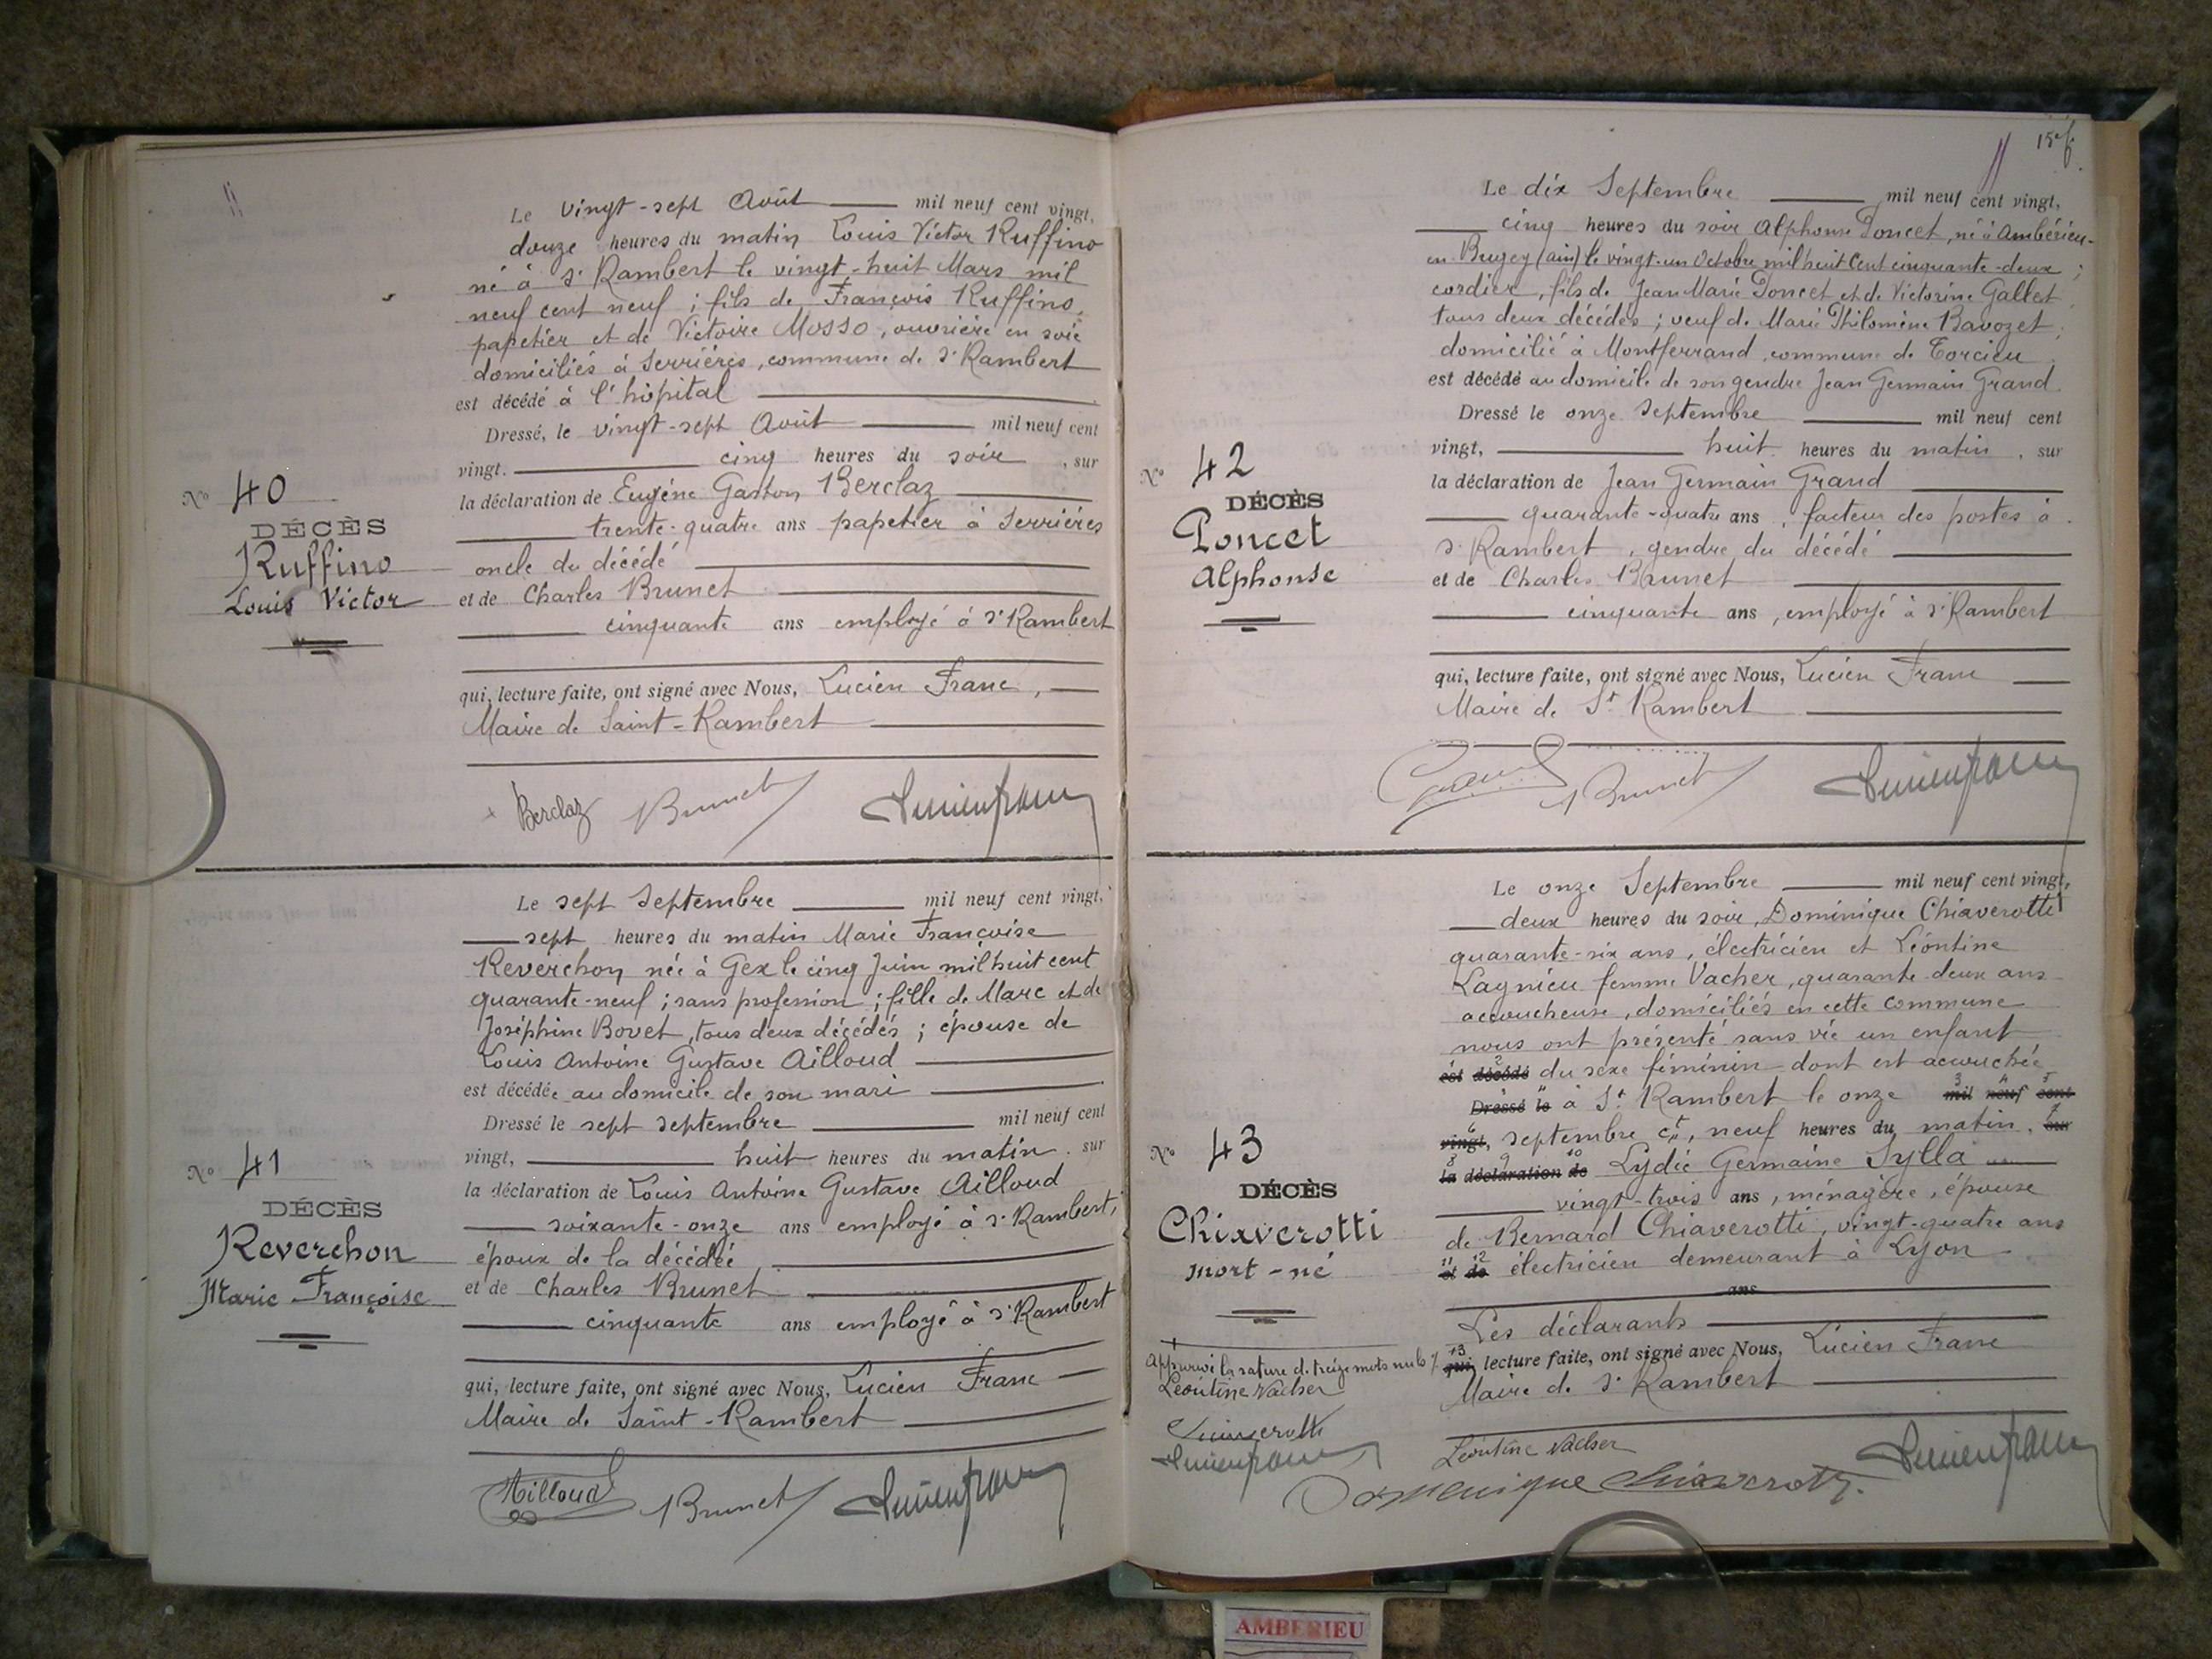 Le vingt-sept Août mil neuf cent vingt,
douze heures du matin Louis Victor Ruffino
né à St Rambert le vingt-huit Mars mil
neuf cent neuf ; fils de François Ruffino,
papetier et de Victoire Mosso, ouvrière en soie
domiciliés à Serrières, commune de St Rambert
est décédé à l'hôpital
Dressé, le vingt-sept Août mil neuf cent
vingt. cinq heures du soir, sur
la déclaration de Eugène Gaston Berclaz
trente-quatre ans papetier à Serrières
oncle du décédé
et de Charles Brunet
cinquante ans employé à St Rambert
qui, lecture faite, ont signé avec Nous, Lucien Franc,
Maire de Saint-Rambert
N° 40
DÉCÈS
Ruffino
Louis Victor
Berclaz Brunet Lucien franc
Le sept Septembre mil neuf cent vingt,
sept heures du matin Marie Françoise
Reverchon née à Gex le cinq Juin mil huit cent
quarante-neuf ; sans profession ; fille de Marc et de
Joséphine Bovet, tous deux décédés ; épouse de
Louis Antoine Gustave Ailloud
est décédée au domicile de son mari
Dressé le sept septembre mil neuf cent
vingt, huit heures du matin. sur
la déclaration de Louis Antoine Gustave Ailloud
soixante-onze ans employé à St Rambert,
époux de la décédée,
et de Charles Brunet
cinquante ans employé à St Rambert
qui, lecture faite, ont signé avec Nous, Lucien Franc
Maire de Saint-Rambert
N° 41
DÉCÈS
Reverchon
Marie Françoise
Ailloud Brunet Lucien franc
Le dix Septembre mil neuf cent vingt,
cinq heures du soir Alphonse Poncet, né à Ambérieu-
en Bugey (ain) le vingt-un Octobre mil huit Cent cinquante-deux ;
cordier, fils de Jean Marie Poncet et de Victorine Gallet
tous deux décédés ; veuf de Marie Philomène Bavozet ;
domicilié à Montferrand, commune de Torcieu
est décédé au domicile de son gendre Jean Germain Grand
Dressé le onze Septembre mil neuf cent
vingt, huit heures du matin, sur
la déclaration de Jean Germain Grand
quarante-quatre ans, facteur des postes à
St Rambert, gendre du décédé
et de Charles Brunet
cinquante ans, employé à St Rambert
qui, lecture faite, ont signé avec Nous, Lucien Franc
Maire de St Rambert
N° 42
DÉCÈS
Poncet
Alphonse
Grand Brunet Lucien franc
Le onze Septembre mil neuf cent vingt,
deux heures du soir, Dominique Chiaverotti
quarante-six ans, électricien et Léontine
Lagnieu femme Vacher, quarante-deux ans
accoucheuse, domiciliés en cette commune
nous ont présenté sans vie un enfant
est décédé du sexe féminin dont est accouchée
Dressé le à St Rambert le onze mil neuf cent
vingt, septembre ct, neuf heures du matin, sur
la déclaration de Lydie Germaine Sylla
vingt-trois ans, ménagère, épouse
de Bernard Chiaverotti, vingt-quatre ans
et de électricien demeurant à Lyon
ans
Les déclarants
qui, lecture faite, ont signé avec Nous, Lucien Franc
Maire de St Rambert
N° 43
DÉCÈS
Chiaverotti
mort-né
Approuvé la rature de treize mots nuls
Léontine Vacher
Chiaverotti
Lucien franc
Léontine Vacher
Domenique Chiaverotti Lucien franc
AMBERIEU